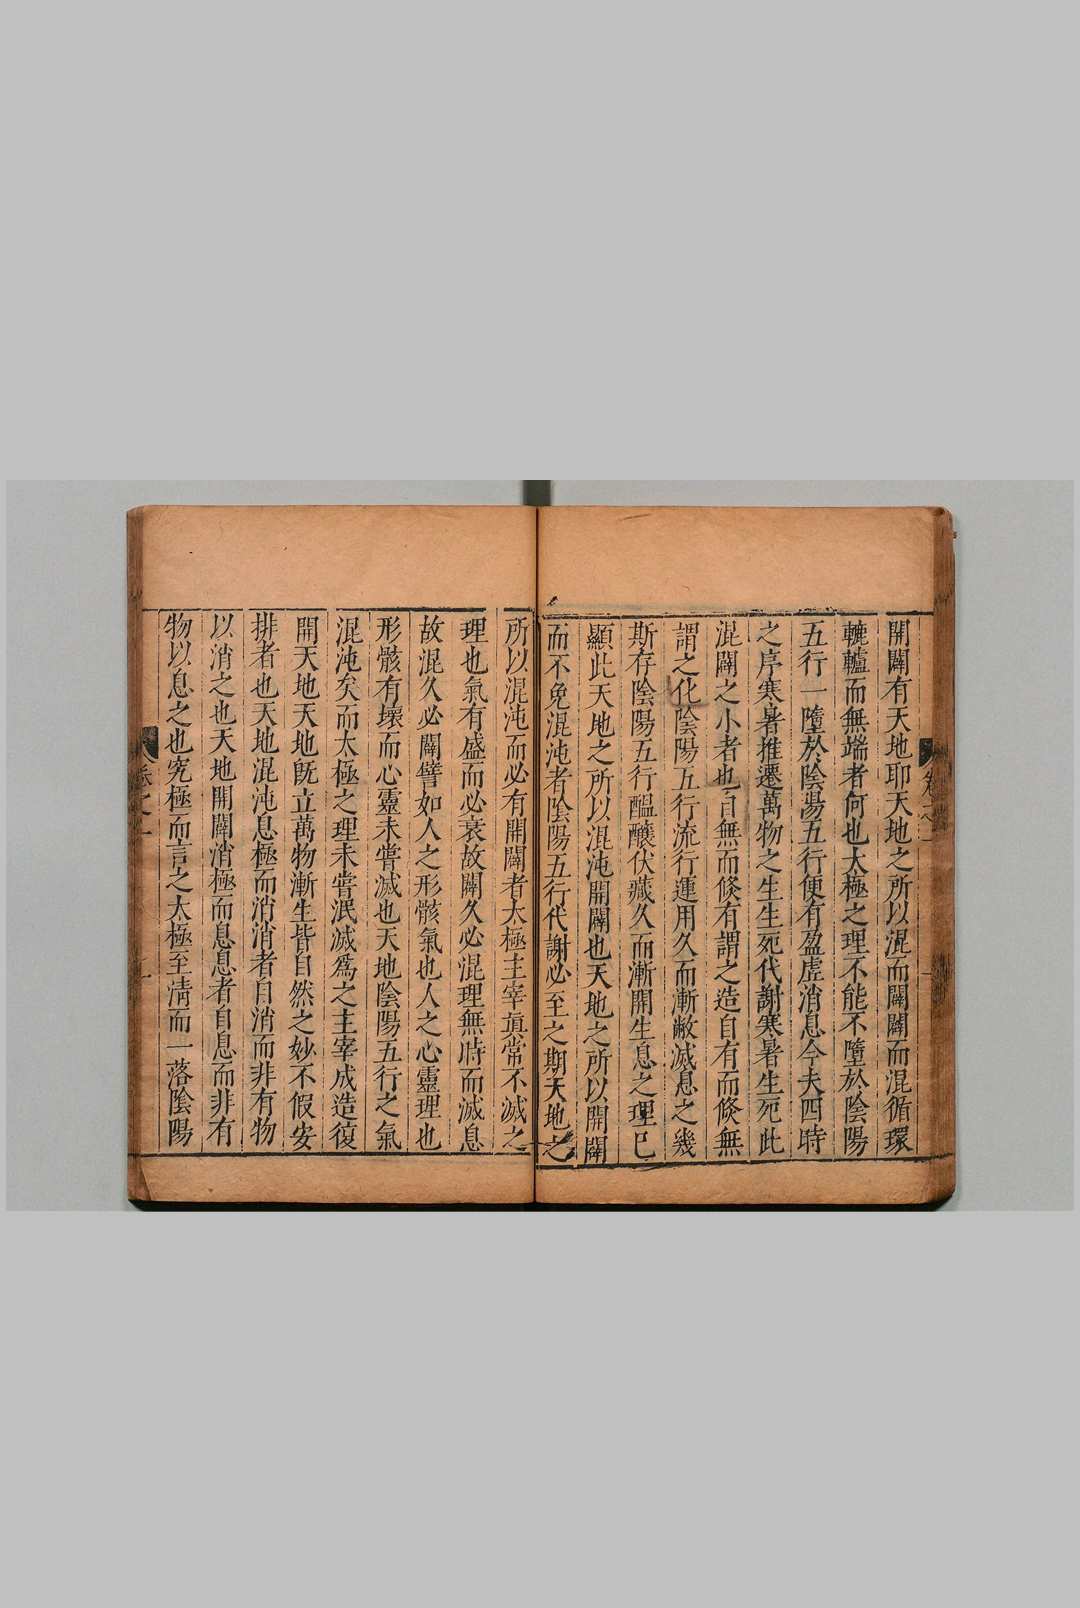 開闢有天地耶天地之所以混而闢闢而混循環
轆轤而無端者何也太極之理不能不墮於陰陽
五行一墮於陰陽五行便有盈虛消息今夫四時
之序寒暑推遷萬物之生生死代謝寒暑生死此
混闢之小者也自無而倏有謂之造自有而倏無
謂之化陰陽五行流行運用久而漸敝滅息之幾
斯存陰陽五行醞釀伏藏久而漸開生息之理已
顯此天地之所以混沌開闢也天地之所以開闢
而不免混沌者陰陽五行代謝必至之期天地之
所以混沌而必有開闢者太極主宰真常不滅之
理也氣有盛而必衰故闢久必混理無時而滅息
故混久必闢譬如人之形骸氣也人之心靈理也
形骸有壞而心靈未嘗滅也天地陰陽五行之氣
混沌矣而太極之理未嘗泯滅為之主宰成造復
開天地天地既立萬物漸生皆自然之妙不假安
排者也天地混沌息極而消消者自消而非有物
以消之也天地開闢消極而息息者自息而非有
物以息之也究極而言之太極至清而一落陰陽
卷之一